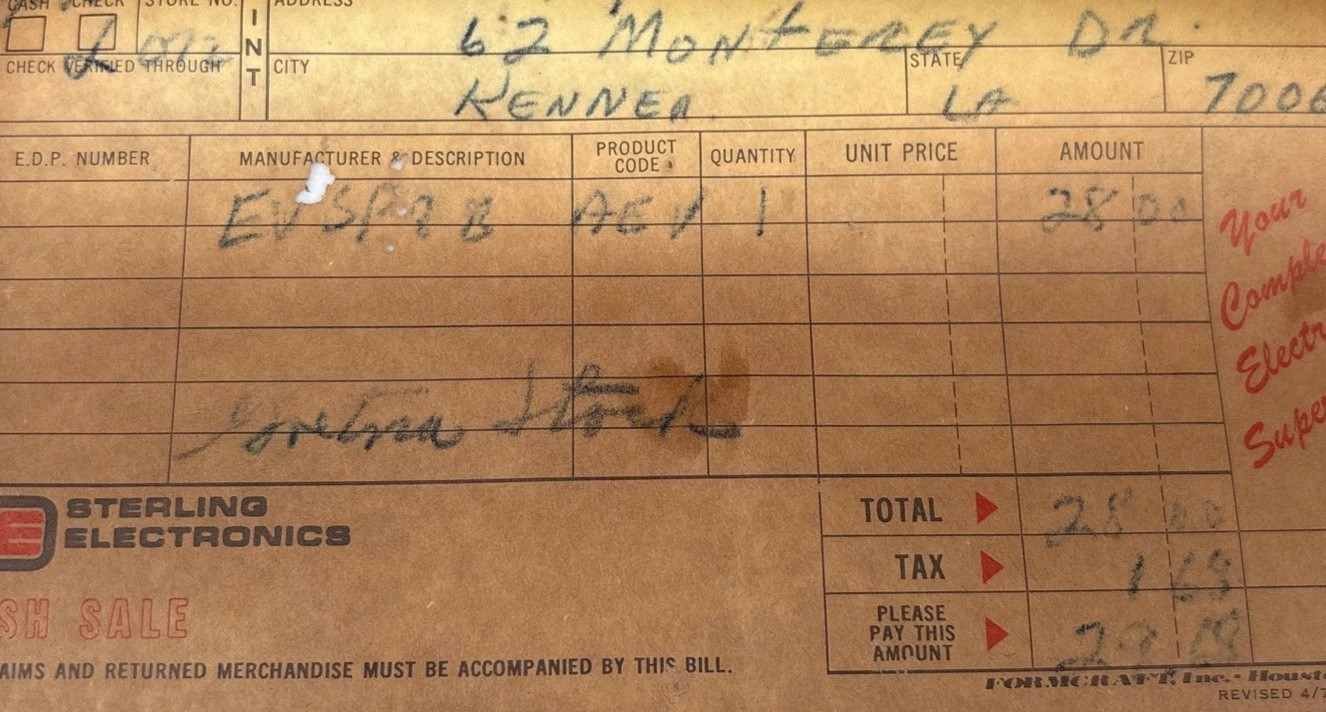 CASH CHECK STORE NO. ADDRESS
62 MONTEREY DR.
CHECK VERIFIED THROUGH
INT
CITY STATE ZIP
KENNER LA 7006
E.D.P. NUMBER MANUFACTURER & DESCRIPTION PRODUCT CODE QUANTITY UNIT PRICE AMOUNT
EVSP8B AEV 1 28 00
Your
Comple
Electr
Super
Gretna Stock
STERLING
ELECTRONICS
SH SALE
AIMS AND RETURNED MERCHANDISE MUST BE ACCOMPANIED BY THIS BILL.
TOTAL 28 00
TAX 1 68
PLEASE
PAY THIS
AMOUNT
29 68
FORMCRAFT, Inc. - Houst
REVISED 4/7